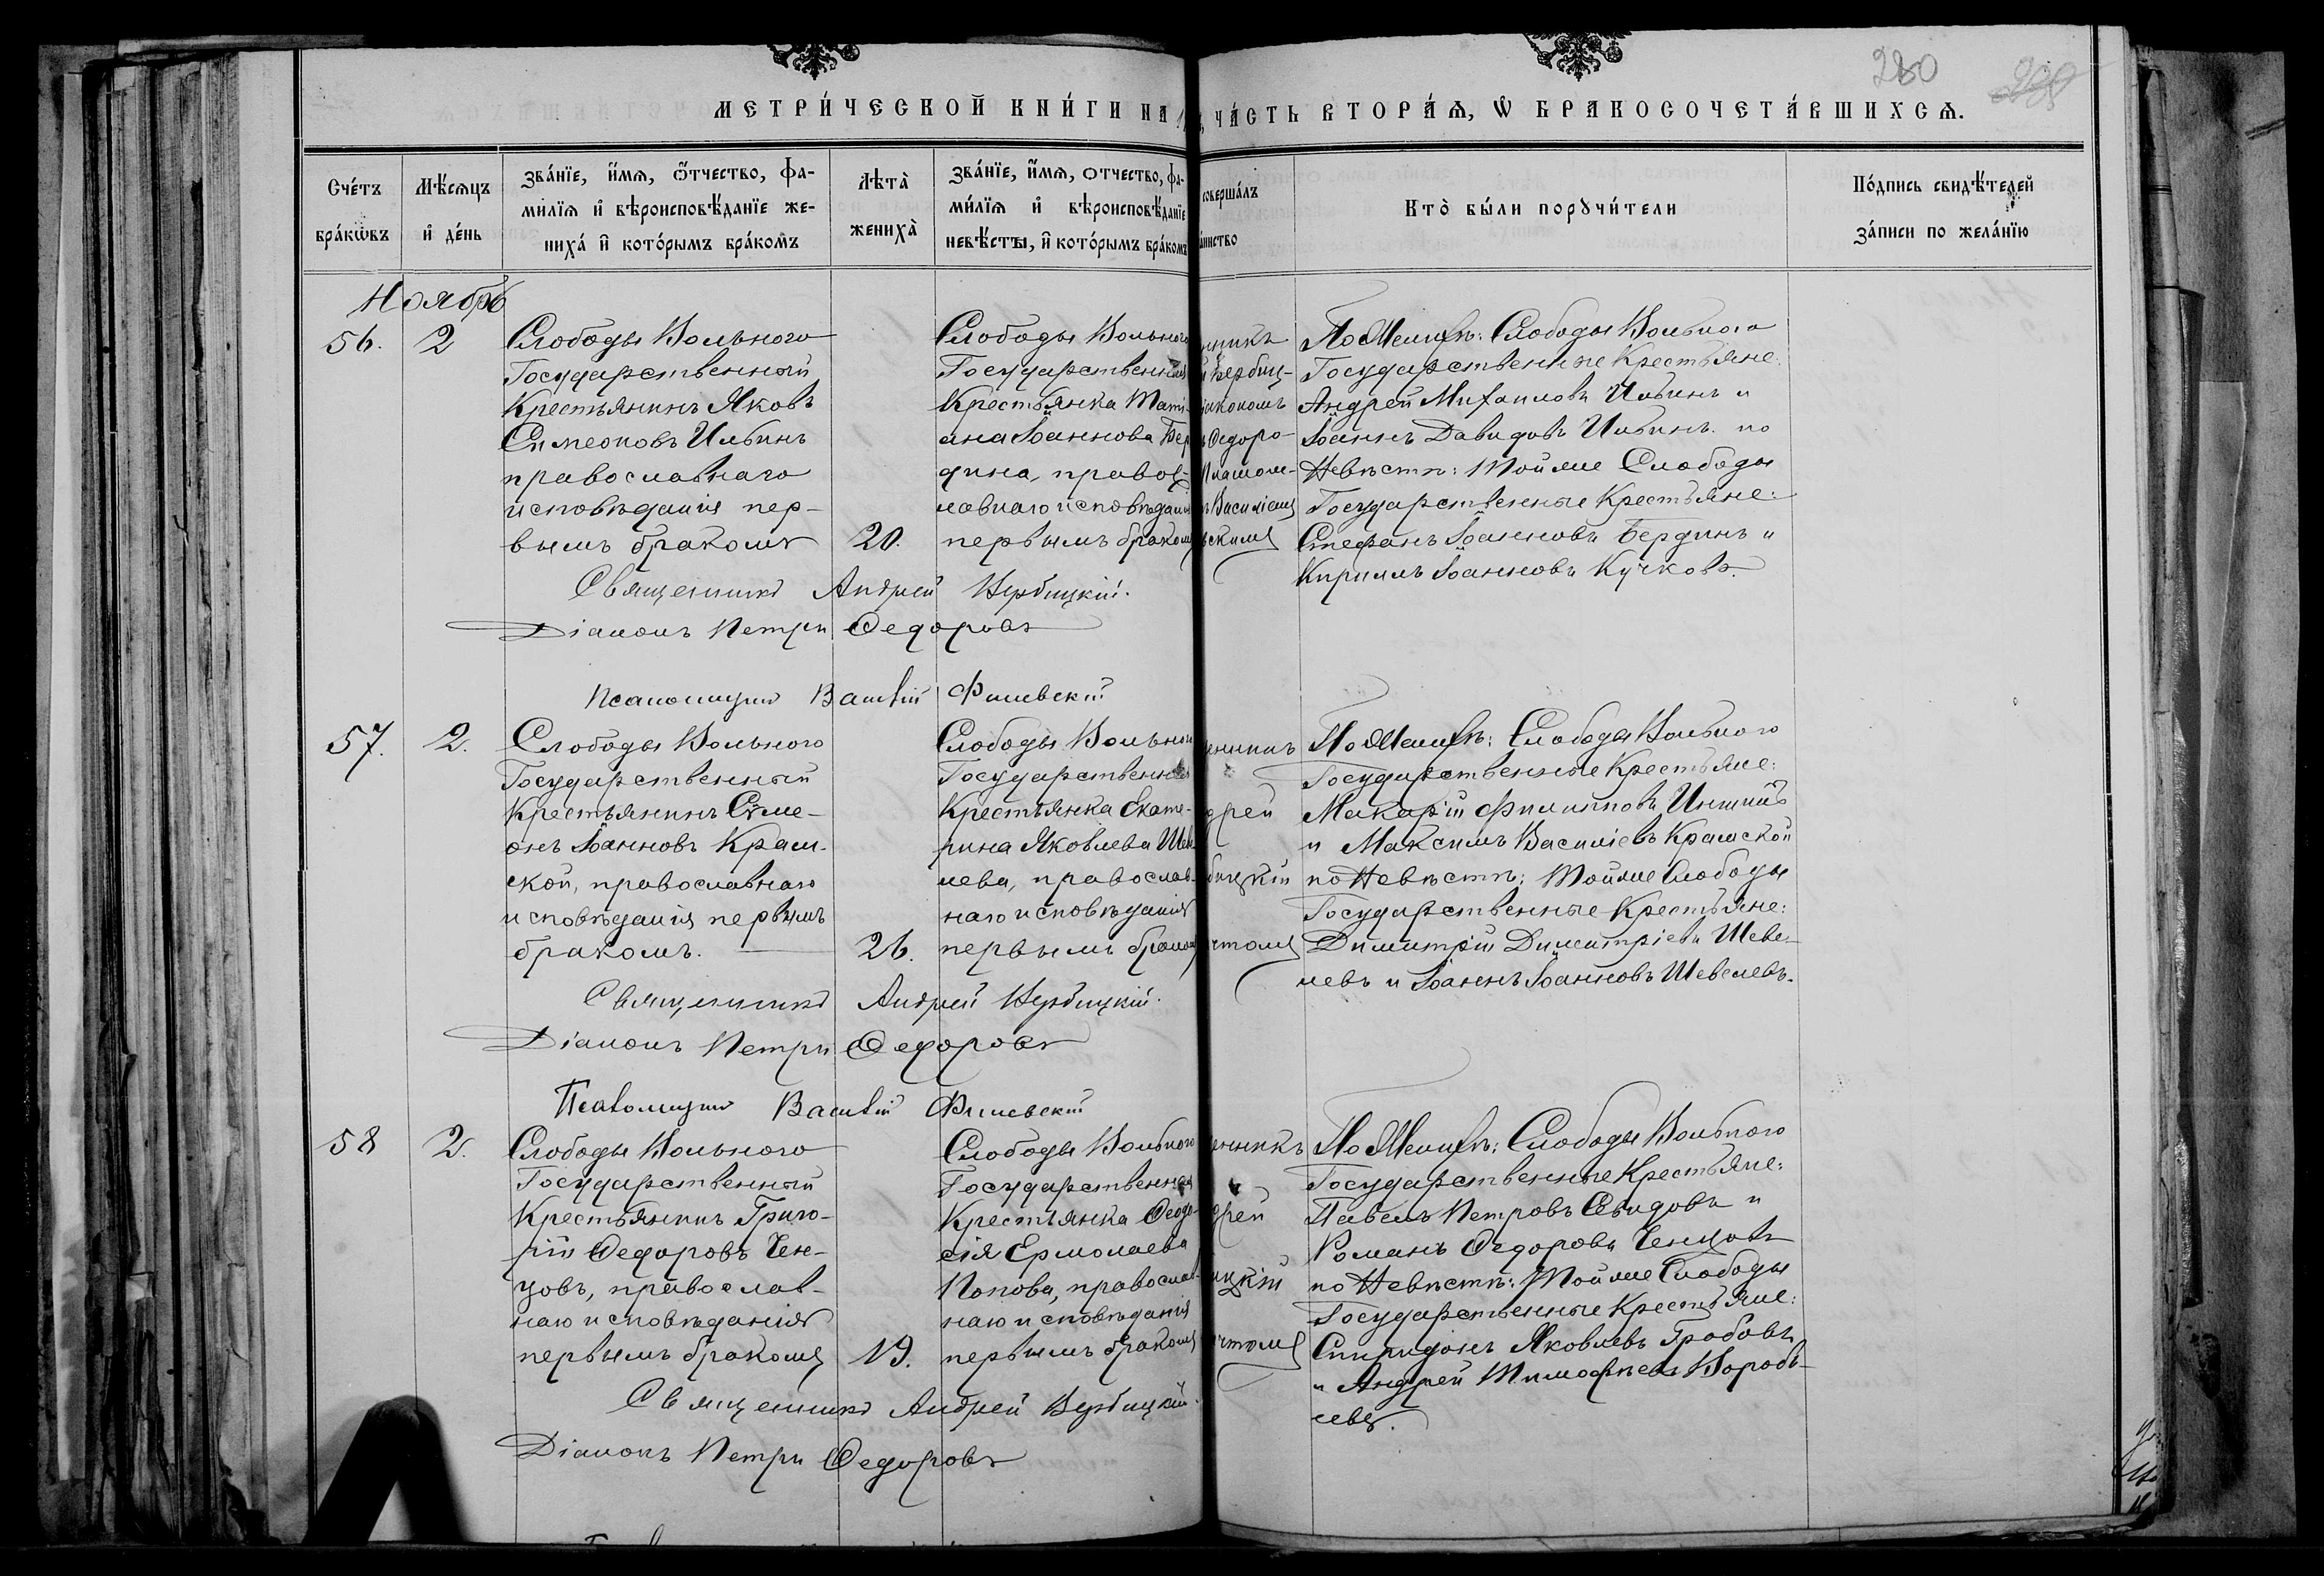 280
МЕТРИ́ЧЕСКОЙ КНИ́ГИ НА
ЧА́СТЬ ВТОРА́Ѧ, Ѡ҆ БРАКОСОЧЕТА́ВШИХСѦ.
Сче́тъ
бра́кѡвъ
Мѣ́сѧцъ
и҆ де́нь
Зва́нїе, и҆́мѧ, ѻ҆́тчество, фа-
ми́лїѧ и҆ вѣроисповѣ́данїе же-
ниха́ и҆ кото́рымъ бра́комъ
Лѣта̀
жениха̀
Зва́нїе, и҆́мѧ, отчество, фа-
ми́лїѧ и҆ вѣроисповѣ́данїе
невѣ́сты, и҆ кото́рымъ бра́комъ
совершáлъ
Кто̀ бы́ли порꙋчи́тели
По́дпись свидѣ́телей
за́писи по жела́нїю
Ноябрь
56.
2
Слободы Вольного
Государственный
Крестьянинъ Яковъ
Симеоновъ Ильинъ
православнаго
исповѣданія пер-
вымъ бракомъ
20.
Слободы Вольного
Государственная
Крестьянка Тати-
ана Іоаннова Бер
дина, правос-
лавнаго исповѣданія
первымъ бракомъ
Вербиц-
іакономъ
Ѳедоро-
Василіемъ
скимъ
По Женихѣ: Слободы Вольного
Государственные Крестьяне
Андрей Михаиловъ Ильинъ и
Іоаннъ Давидовъ Ильинъ. по
Невѣстѣ: Той же Слободы
Государственные Крестьяне:
Стефанъ Іоанновъ Бердинъ и
Кириллъ Іоанновъ Кучковъ.
Священникъ Андрей Вербицкій.
Діаконъ Петръ Ѳедоровъ
Псаломщикъ Василій Филевскій
57.
2.
Слободы Вольного
Государственный
Крестьянинъ Симе-
онъ Іоанновъ Крам-
ской, православнаго
исповѣданія первымъ
бракомъ.
26.
Слободы Вольного
Государственная
Крестьянка Екате-
рина Яковлева Шеве
лева, православ-
наго исповѣданія
первымъ бракомъ
енникъ
дрей
бицкій
стомъ
По Женихѣ: Слободы Вольного
Государственные Крестьяне:
Макарій Филипповъ
и Максимъ Василіевъ Крамской
по Невѣстѣ: Той же Слободы
Государственные Крестьяне:
Димитрій Димитріевъ Шеве-
левъ и Іоаннъ Іоанновъ Шевелевъ.
Священникъ Андрей Вербицкій.
Діаконъ Петръ Ѳедоровъ
Псаломщикъ Василій Филевскій
58
2.
Слободы Вольного
Государственный
Крестьянинъ Григо-
рій Ѳедоровъ Чен-
цовъ, православ-
наго исповѣданія
первымъ бракомъ
19.
Слободы Вольного
Государственная
Крестьянка Ѳеодо-
сія Ермолаева
Попова, православ-
наго исповѣданія
первымъ бракомъ
енникъ
дрей
ицкій
стомъ
По Женихѣ: Слободы Вольного
Государственные Крестьяне:
Павелъ Петровъ Свидовъ и
Романъ Ѳедоровъ Ченцовъ
по Невѣстѣ: Той же Слободы
Государственные Крестьяне:
Спиридонъ Яковлевъ Грабовъ
и Андрей Тимоѳеевъ Воробь-
евъ.
Священникъ Андрей Вербицкій.
Діаконъ Петръ Ѳедоровъ